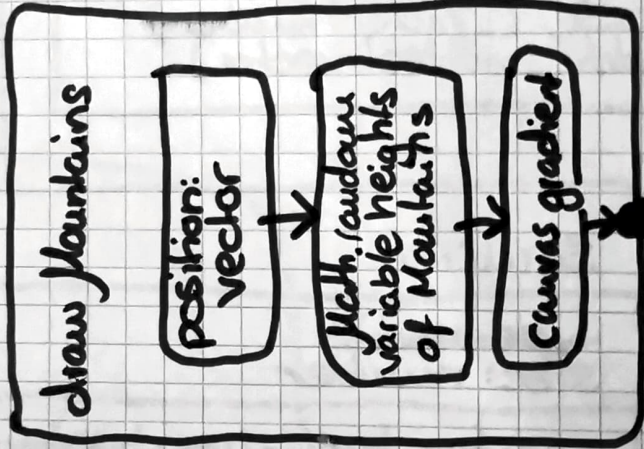 draw Mountains
position:
vector
Math.random
variable heights
of Mountains
canvas gradient